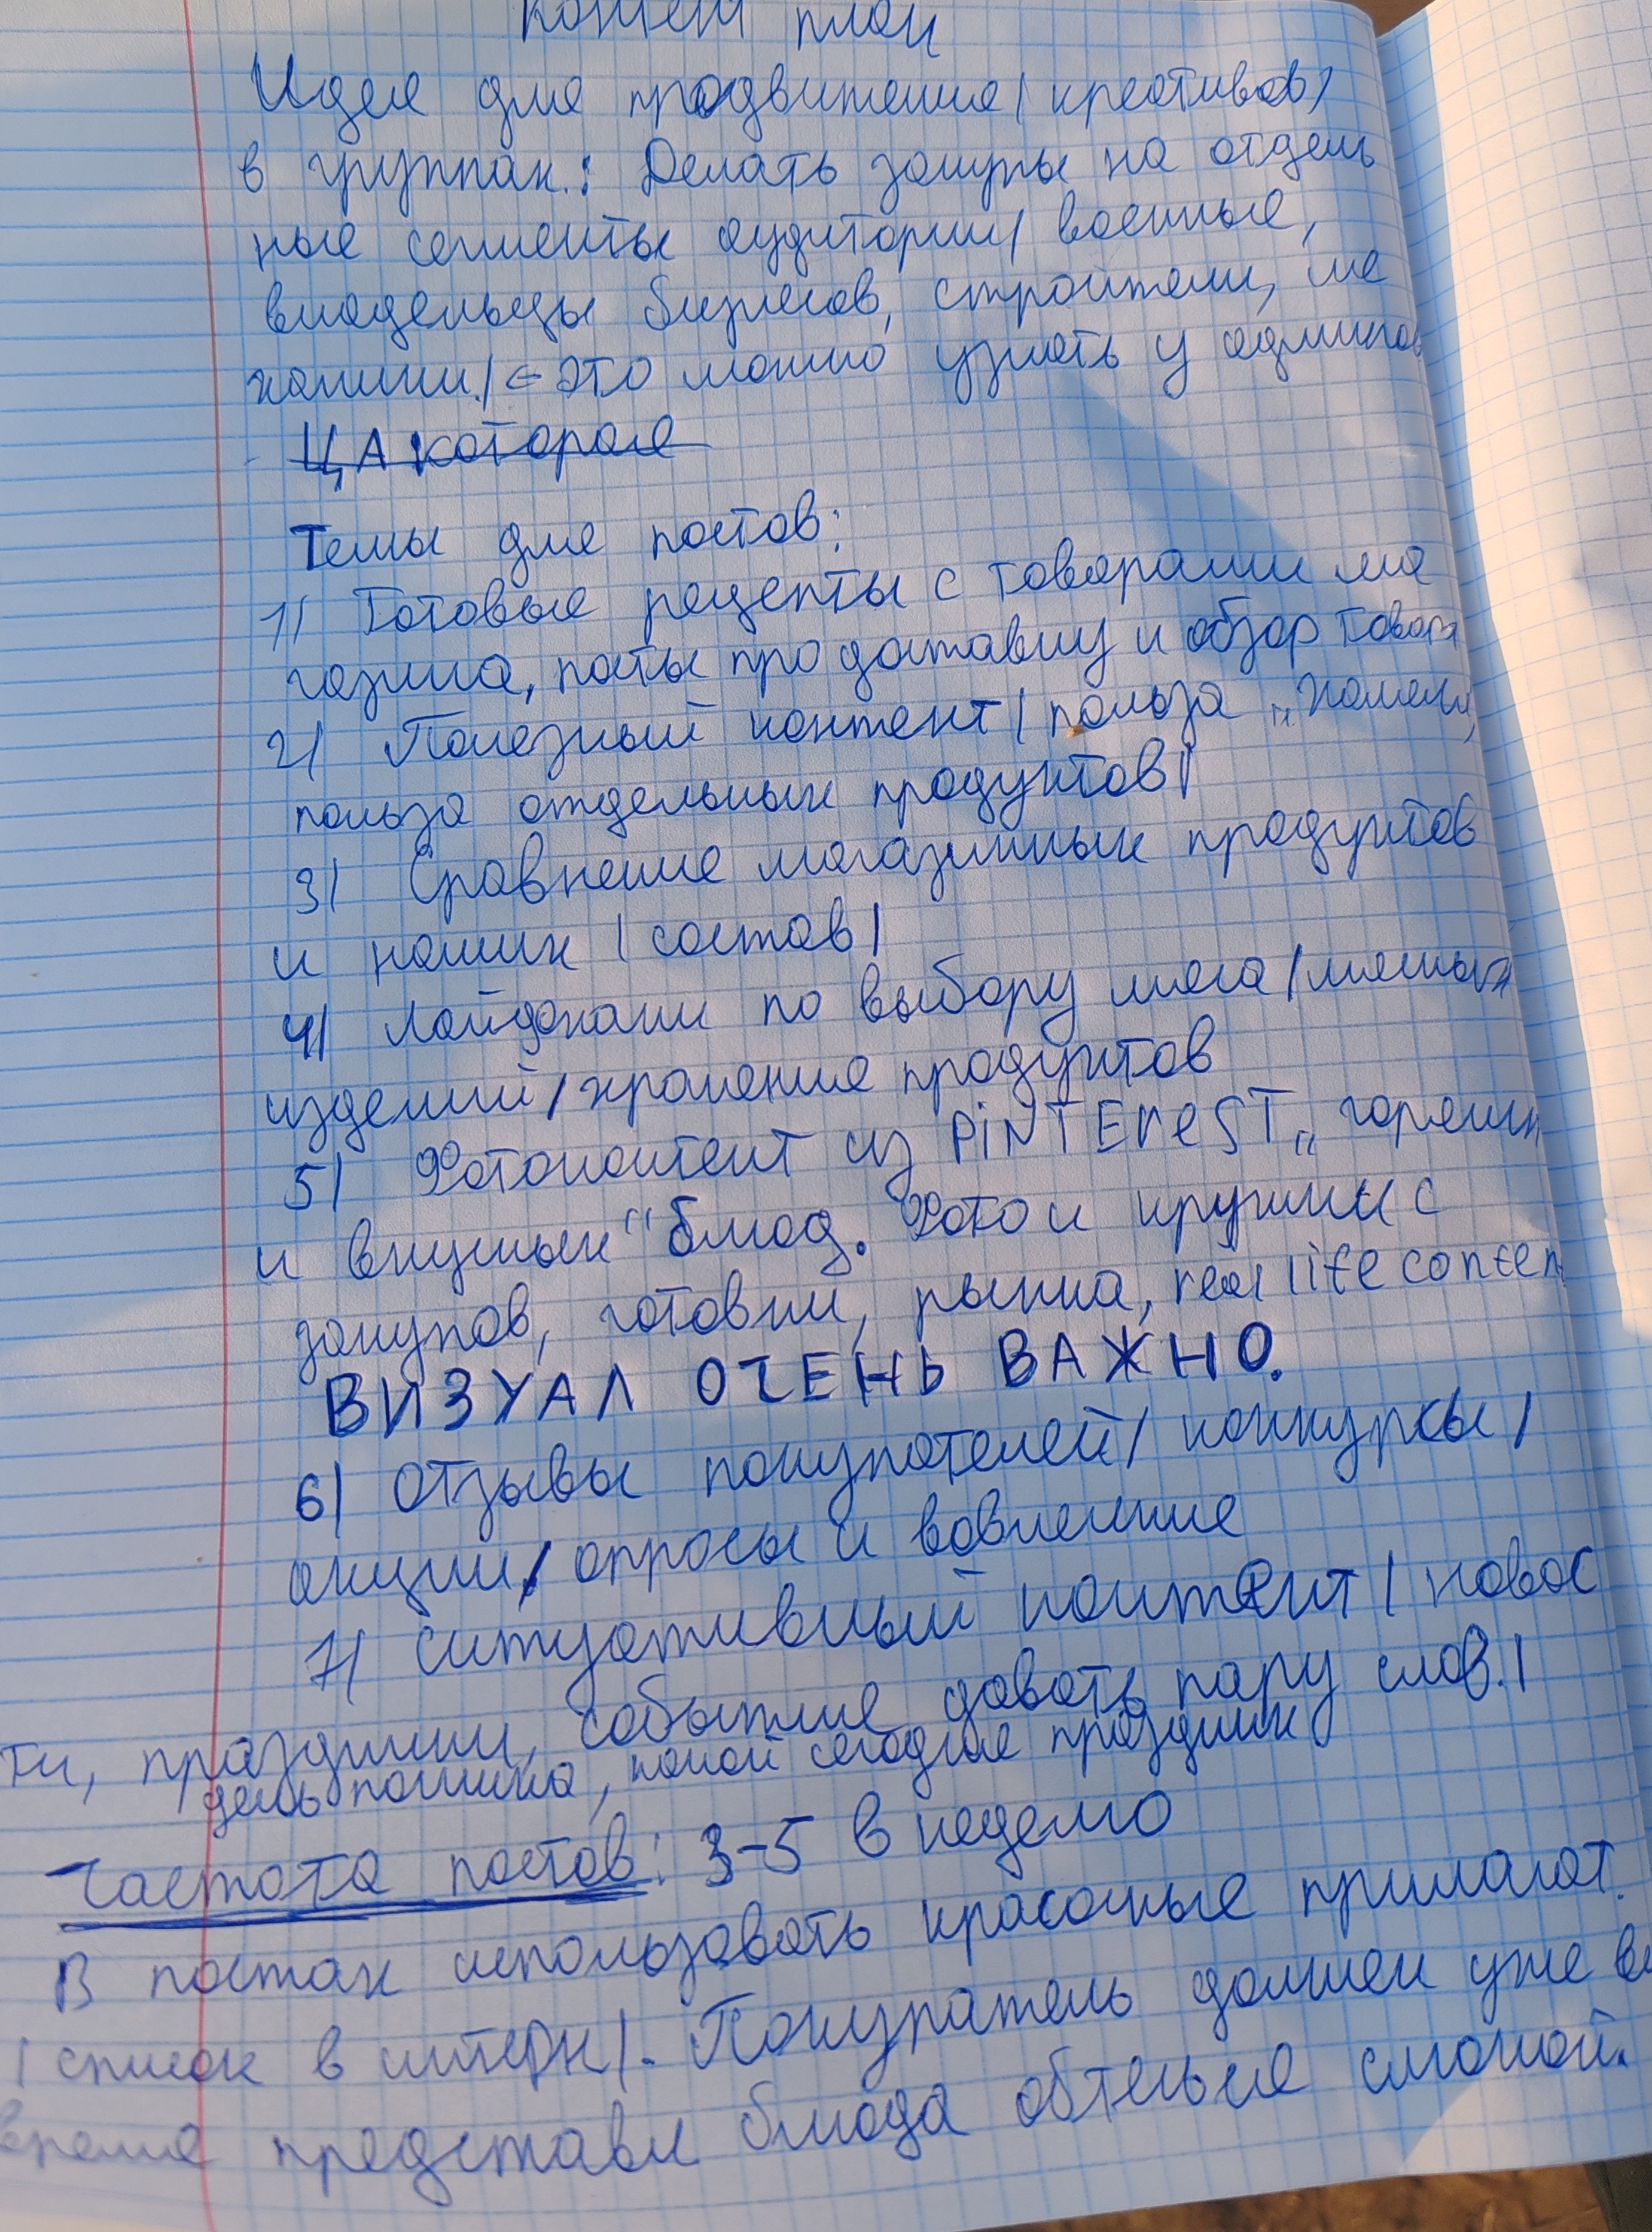 Контент план
Идея для продвижения/креативов/
в группах.: Делать закупы на отдель
ные сегменты аудитории/ военные,
владельцы бизнесов, строители, ме
ханики./ ⇐ это можно узнать у админов
ЦА которая
Темы для постов:
1) Готовые рецепты с товарами ма
газина, посты про доставку и обзор товара
2) Полезный контент/ польза
польза отдельных продуктов/
3) Сравнение магазинных продуктов
и наших /состав/
4) Лайфхаки по выбору мяса/мясных
изделий/хранение продуктов
5) Фотоконтент из PiNTEreST „горячих
и вкусных“ блюд. Фото и кружки с
закупов, готовки, рынка, real life conten
ВИЗУАЛ ОЧЕНЬ ВАЖНО.
6) Отзывы покупателей/ конкурсы/
акции/ опросы и вовлечение
7) Ситуативный контент/ новос
ти, праздники, события давать пару слов./
/день пошика, какой сегодня праздник
Частота постов: 3-5 в неделю
В постах использовать красочные прилагат.
/список в интерн/. Покупатель должен уже во
время представл блюда обтечься слюной.